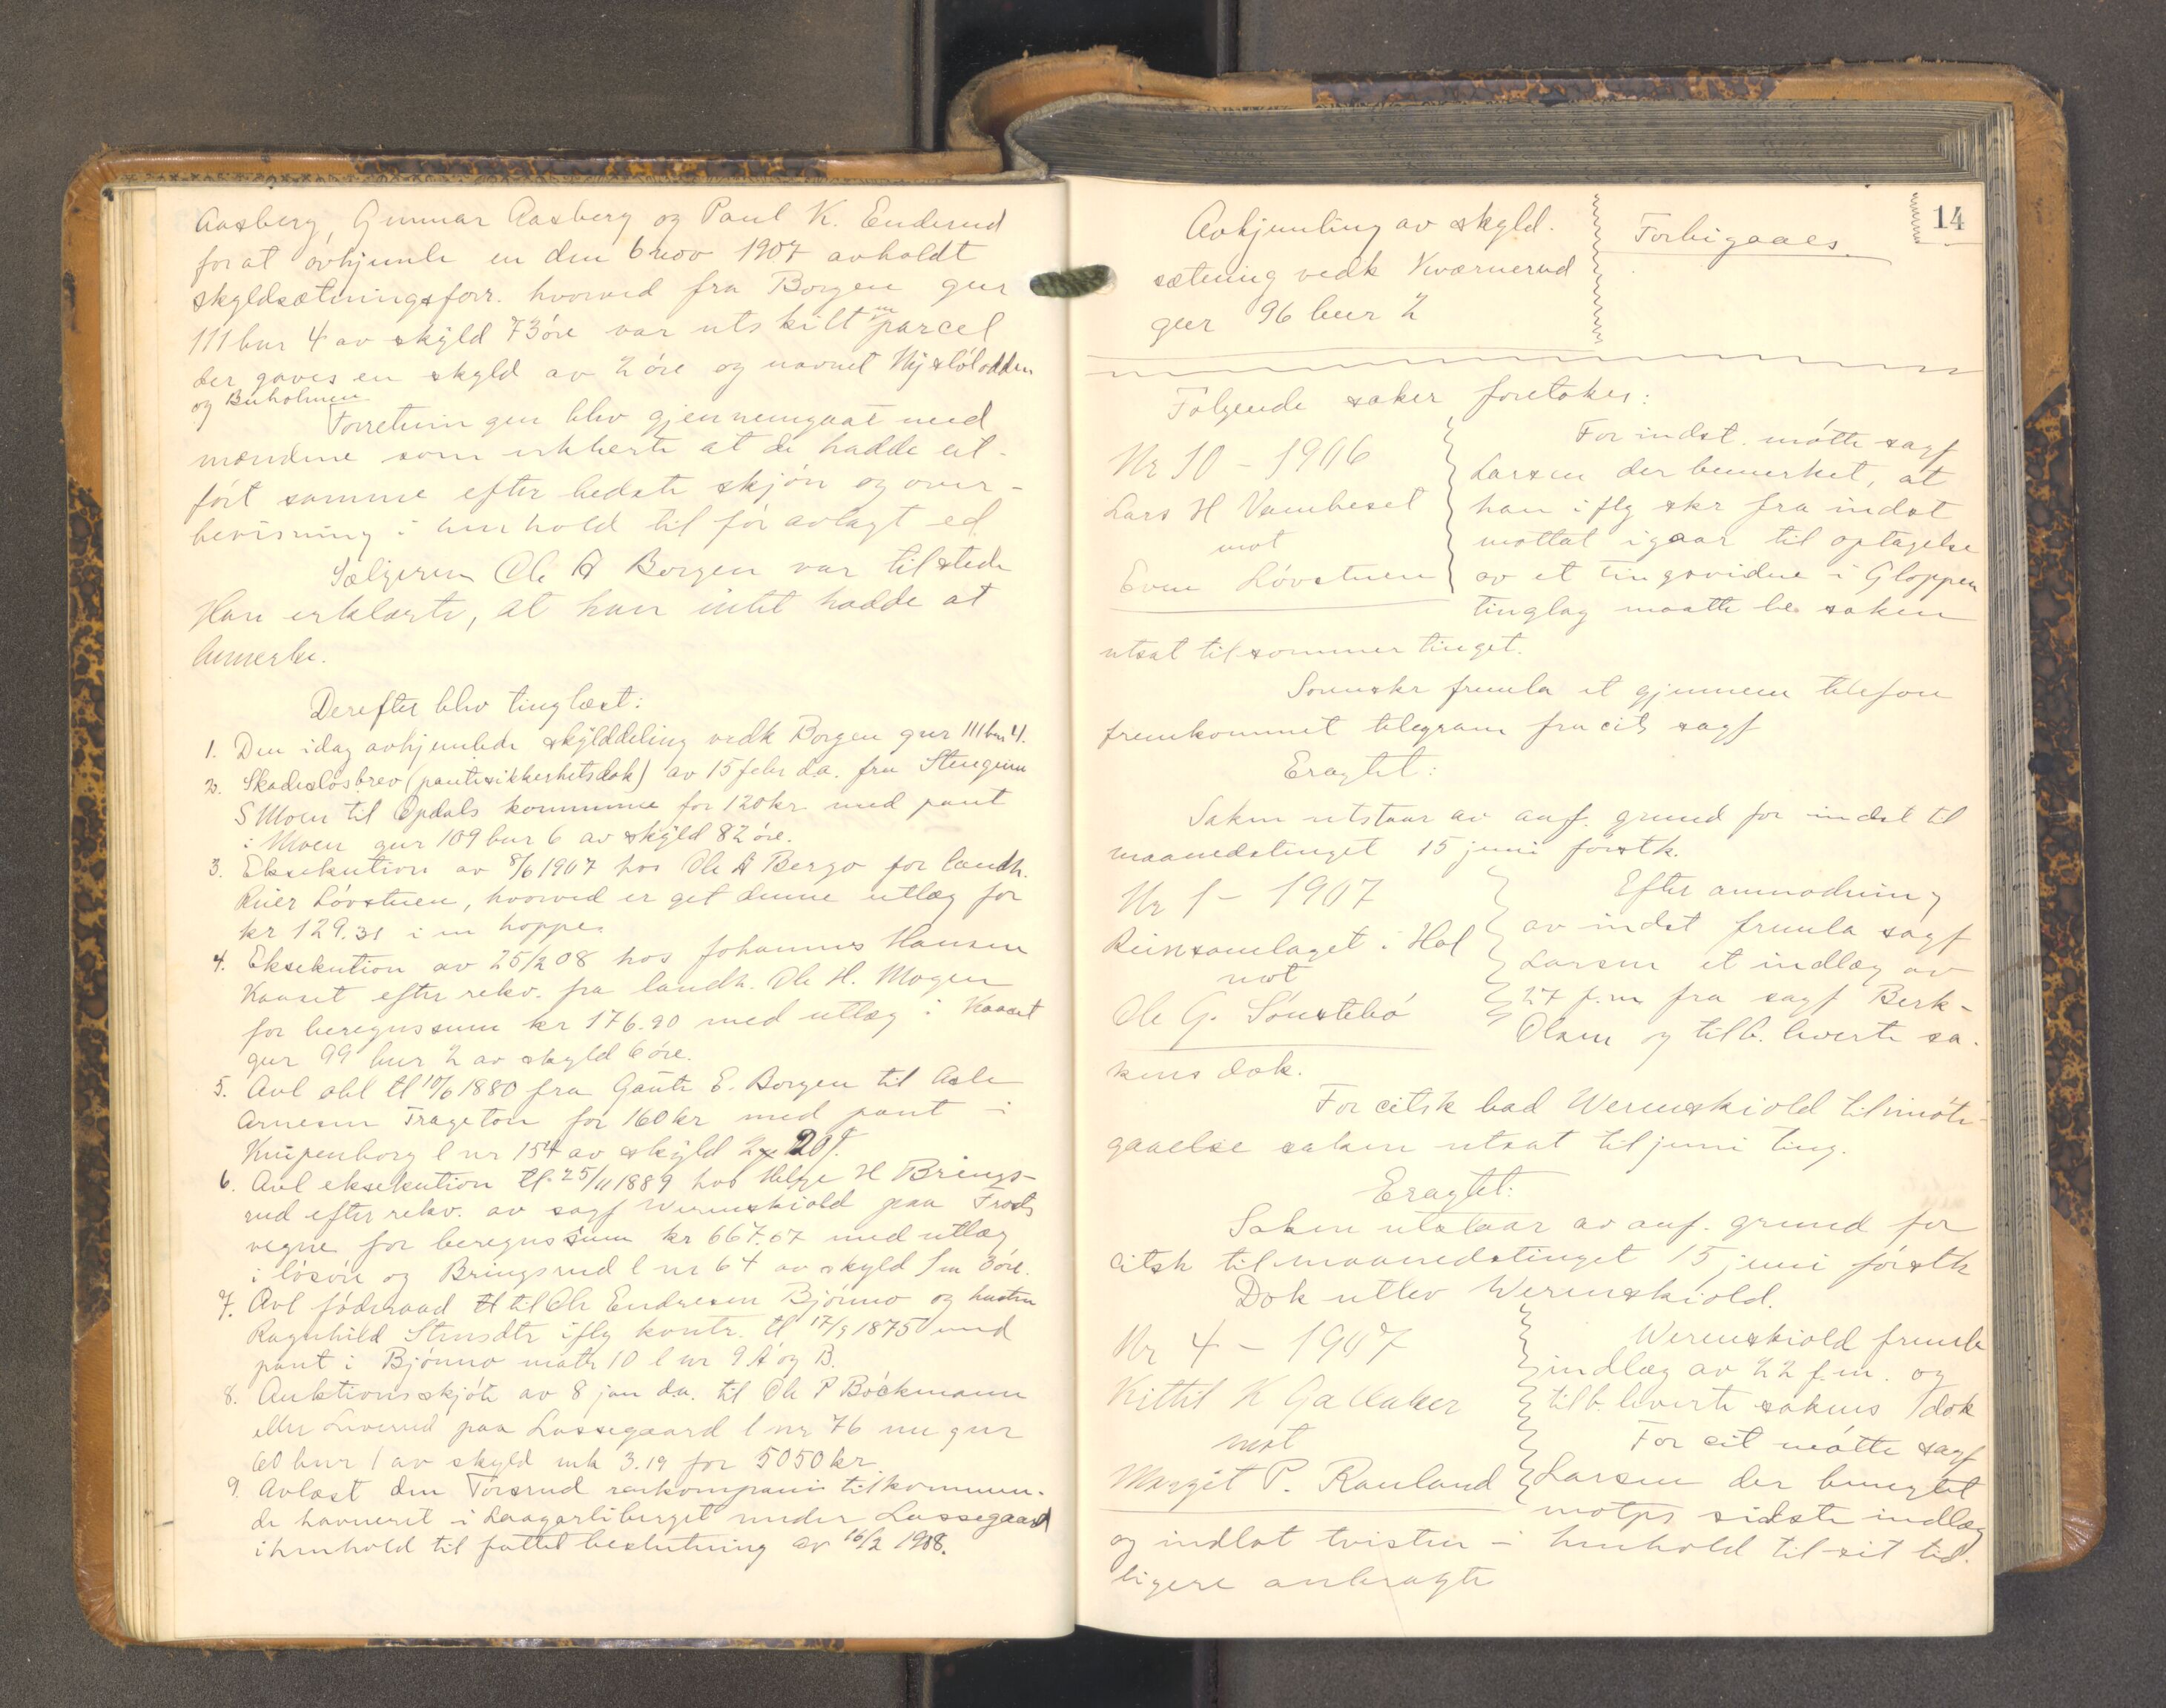 Aasberg, Gunnar Aasberg og Paul K. Enderud
for at avhjemle en den 6 nov 1907 avholdt
skyldsætningsforr. hvorved fra Borgen gnr
111 bnr 4 av skyld 73 øre var utskilt en parcel
der gaves en skyld av 2 øre og navnet Nystölodden
og Buholmen
Forretningen blev gjennemgaat med
mændene som erklærte at de hadde ut-
ført samme efter bedste skjøn og over-
bevisning i henhold til før avlagt ed.
Sælgeren Ole A Borgen var tilstede
Han erklærte, at han intet hadde at
bemerke.
Derefter blev tinglæst:
1. Den idag avhjemlede skylddeling vedk Borgen gnr 111 bnr 4.
2. Skadesløsbrev (pantesikkerhetsdok) av 15 febr d.a. fra Stengrim
S Moen til Opdals kommune for 120 kr med pant
i Moen gnr 109 bnr 6 av skyld 82 øre.
3. Eksekution av 8/6 1907 hos Ole A Bergo for landh.
Reier Løvstuen, hvorved er get denne utlæg for
kr 129.31 i en hoppe.
4. Eksekution av 25/2 08 hos Johannes Hansen
Kaaset efter rekv. fra landh. Ole H. Mogen
for beregnssum kr 176.90 med utlæg i Kaaset
gnr 99 bnr 2 av skyld 6 øre.
5. Avl obl tl 10/6 1880 fra Gaute E. Borgen til Asle
Arnesen Trageton for 160 kr med pant i
Knipenborg l nr 154 av skyld 2 20 f.
6. Avl eksekution tl. 25/11 1889 hos Helge H Brings-
rud efter rekv. av sagf Werenskiold paa Frods
vegne for beregnssum kr 667.67 med utlæg
i løsøre og Bringsrud l nr 64 av skyld 1 m 3 øre.
7. Avl føderaad tl til Ole Endresen Bjønno og hustru
Ragnhild Stensdtr iflg kontr. tl 17/9 1875 med
pant i Bjønno matr 10 l nr 9 A og B.
8. Auktionsskjøte av 8 jan d.a. til Ole P Böckmann
eller Liverud paa Lassegaard l nr 76 nu gnr
60 bnr 1 av skyld mk 3.19 for 5050 kr
9. Avlæst den Törsrud renkompani tilkommen-
de havneret i Laagarliberget under Lassegaard
i henhold til fattet beslutning av 16/2 1908.
14
Avhjemling av skyld-
sætning vedk Kværnerud
gnr 96 bnr 2
Forbigaaes.
Følgende saker foretokes:
Nr 10 - 1906
Lars H Vambeset
mot
Even Løvstuen
For indst. møtte sagf
Larsen der bemerket, at
han iflg skr fra indst
mottat igaar til optagelse
av et tingsvidne i Gloppen
tinglag maatte be saken
utsat til sommertinget.
Sorenskr fremla et gjennem telefon
fremkommet telegram fra cits sagf
Eragtet:
Saken utstaar av anf. grund for indst til
maanedstinget 15 juni førstk.
Nr 1 - 1907
Reinsamlaget i Hol
mot
Ole G. Sønstebø
Efter anmodning
av indst fremla sagf
Larsen et indlæg av
27 f.m fra sagf Berk-
Olsen og tilb. leverte sa-
kens dok.
For citsk bad Werenskiold til imøte-
gaaelse saken utsat til juni ting.
Eragtet:
Saken utstaar av anf. grund for
citsk til maanedstinget 15 juni førstk
Dok utlev Werenskiold.
Nr 4 - 1907
Kittil K Gallaker
mot
Margit P. Rauland
Werenskiold fremla
indlæg av 22 f.m. og
tilb. leverte sakens dok
For cit møtte sagf
Larsen der benegtet
motps sidste indlæg
og indlot tvisten i henhold til sit tid-
ligere anbragte